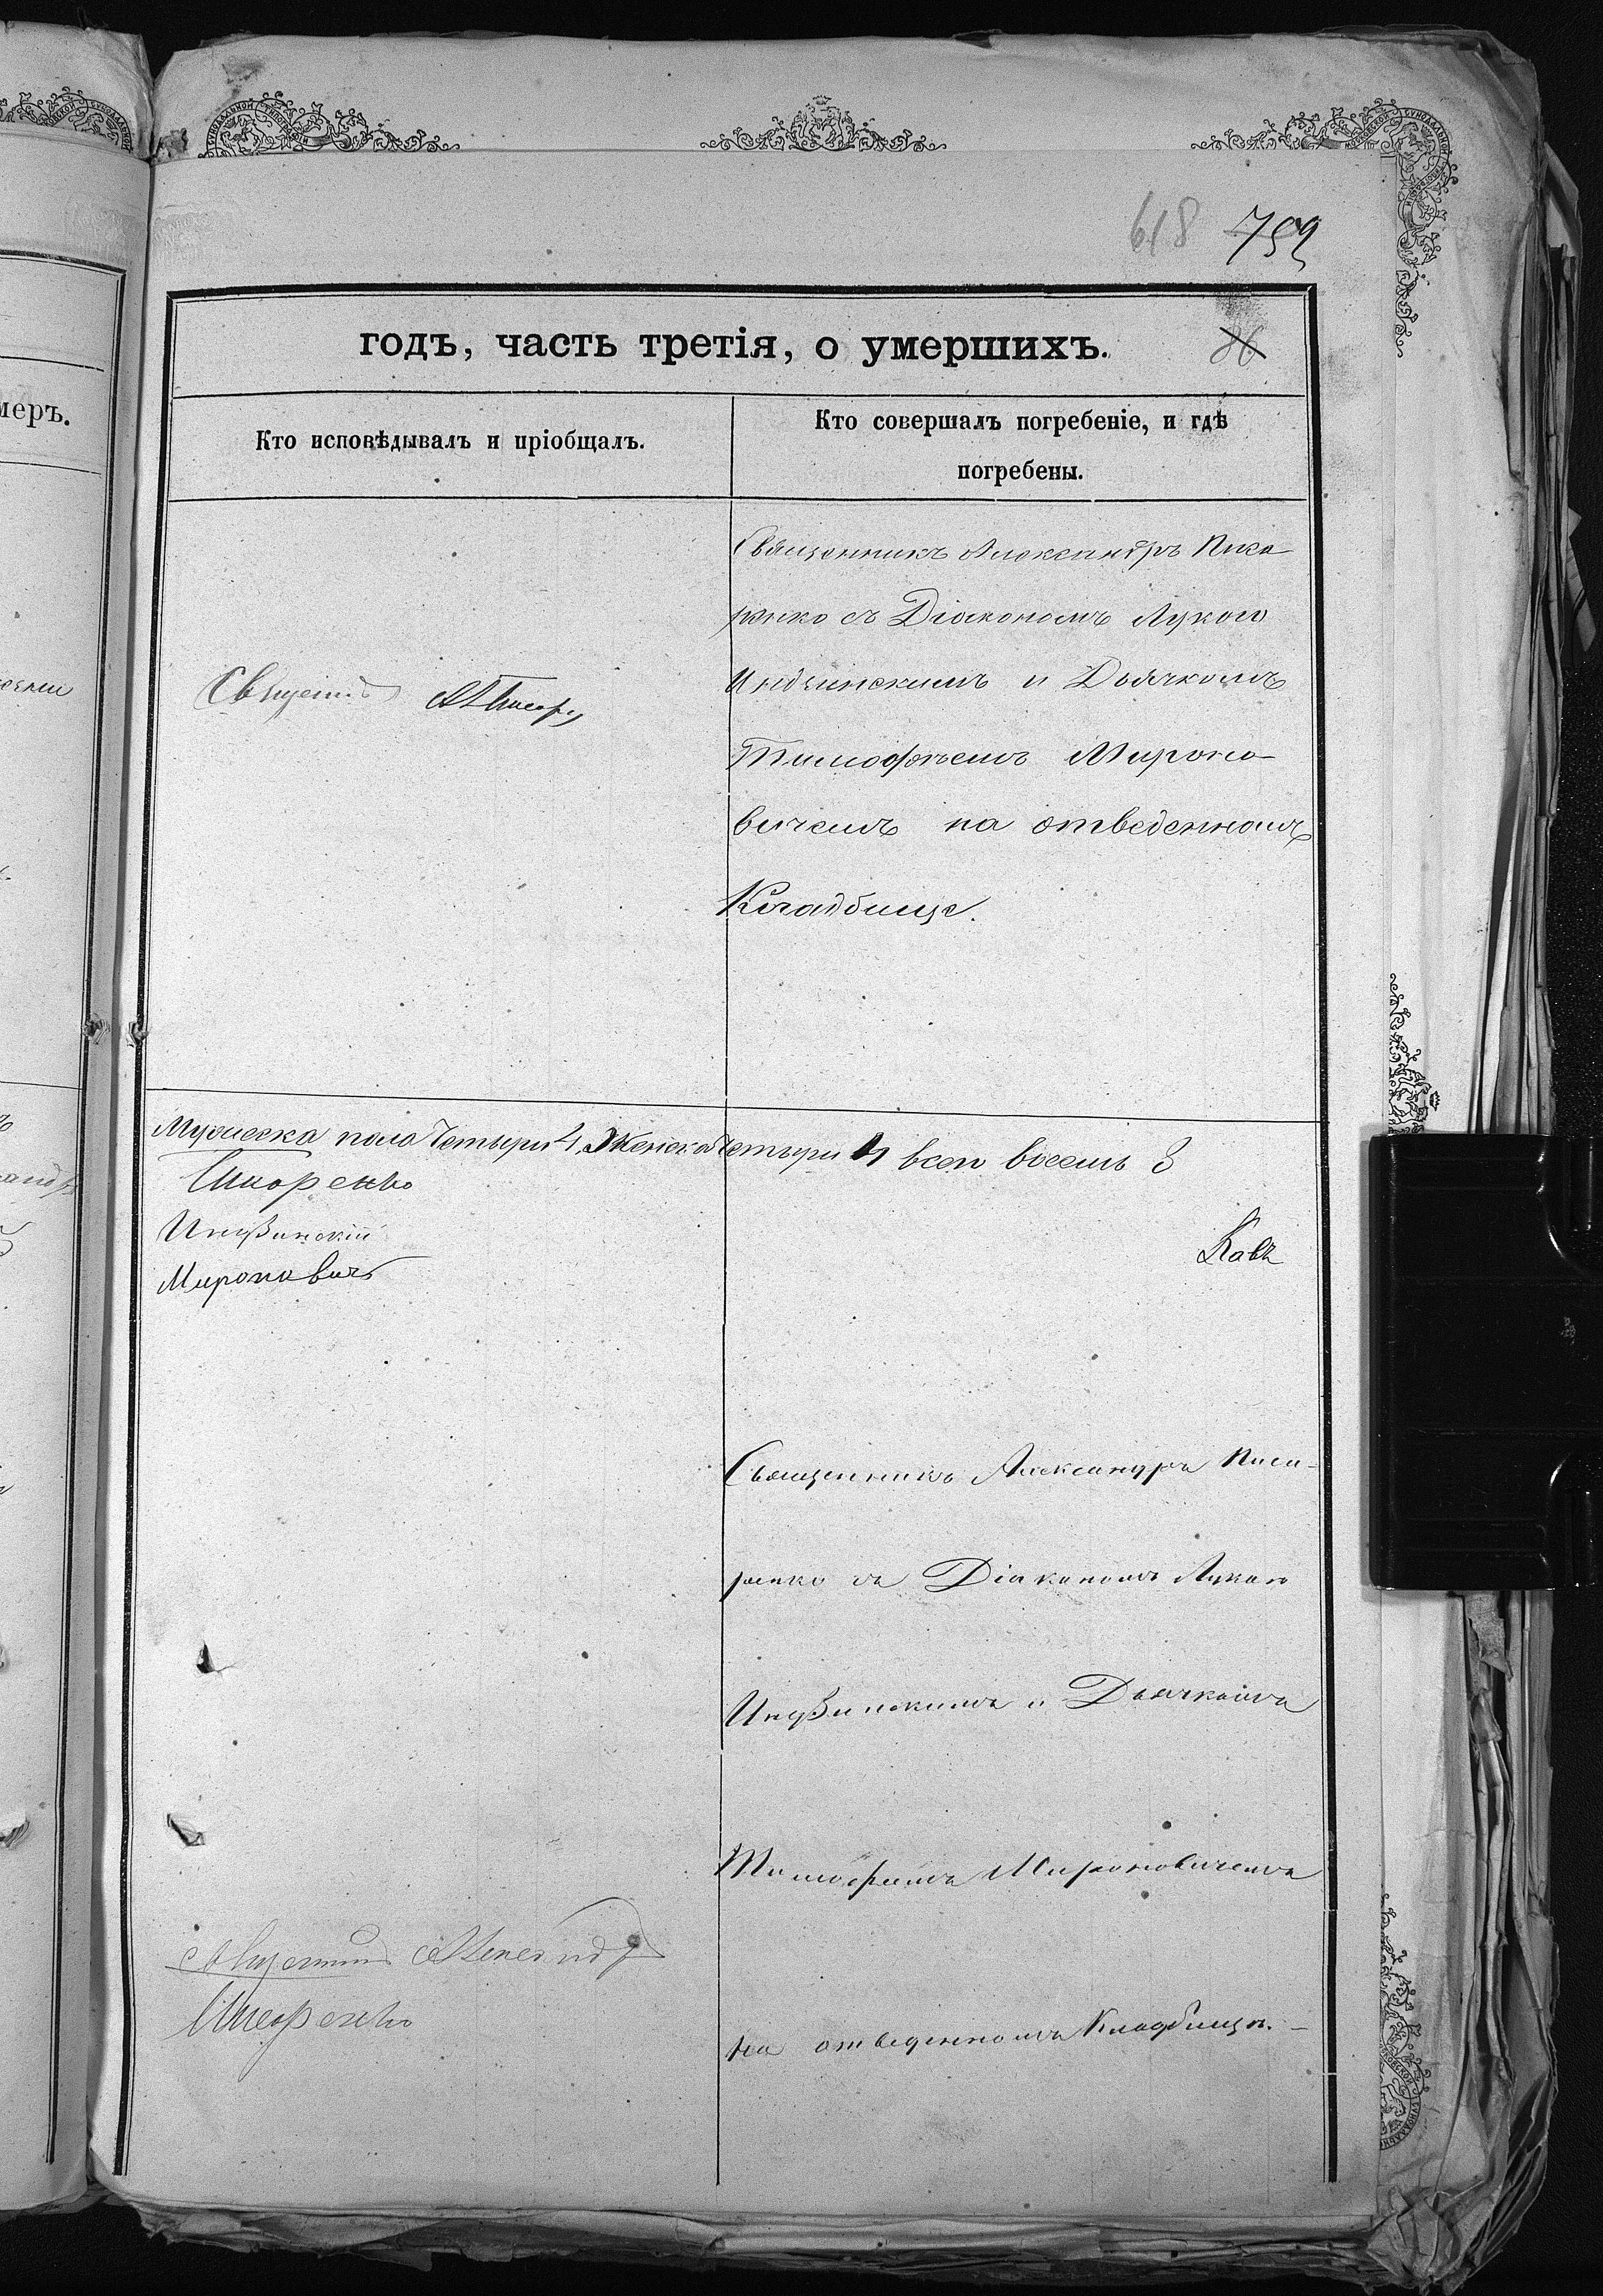 618 759
годъ, часть третія, о умершихъ. 86
меръ.
Кто исповѣдывалъ и пріобщалъ.
Кто совершалъ погребеніе, и гдѣ
погребены.
Священникъ Александръ Писа-
ренко съ Діакономъ Лукою
Индзинскимъ и Дьячкомъ
Тимофѣемъ Мироно-
вичемъ на отведенномъ
Кладбище.
Мужеска пола Четыри 4, Женска Четыри 4 всеи восемь 8
Писаренко
Индзинскій
Мироновичъ
Священникъ Александръ Писа-
ренко съ Діакономъ Лукою
Индзинскимъ и Дьячкомъ
Тимофеимъ Мироновичемъ
на отведенномъ Кладбищѣ. -
Александр
Писаренко